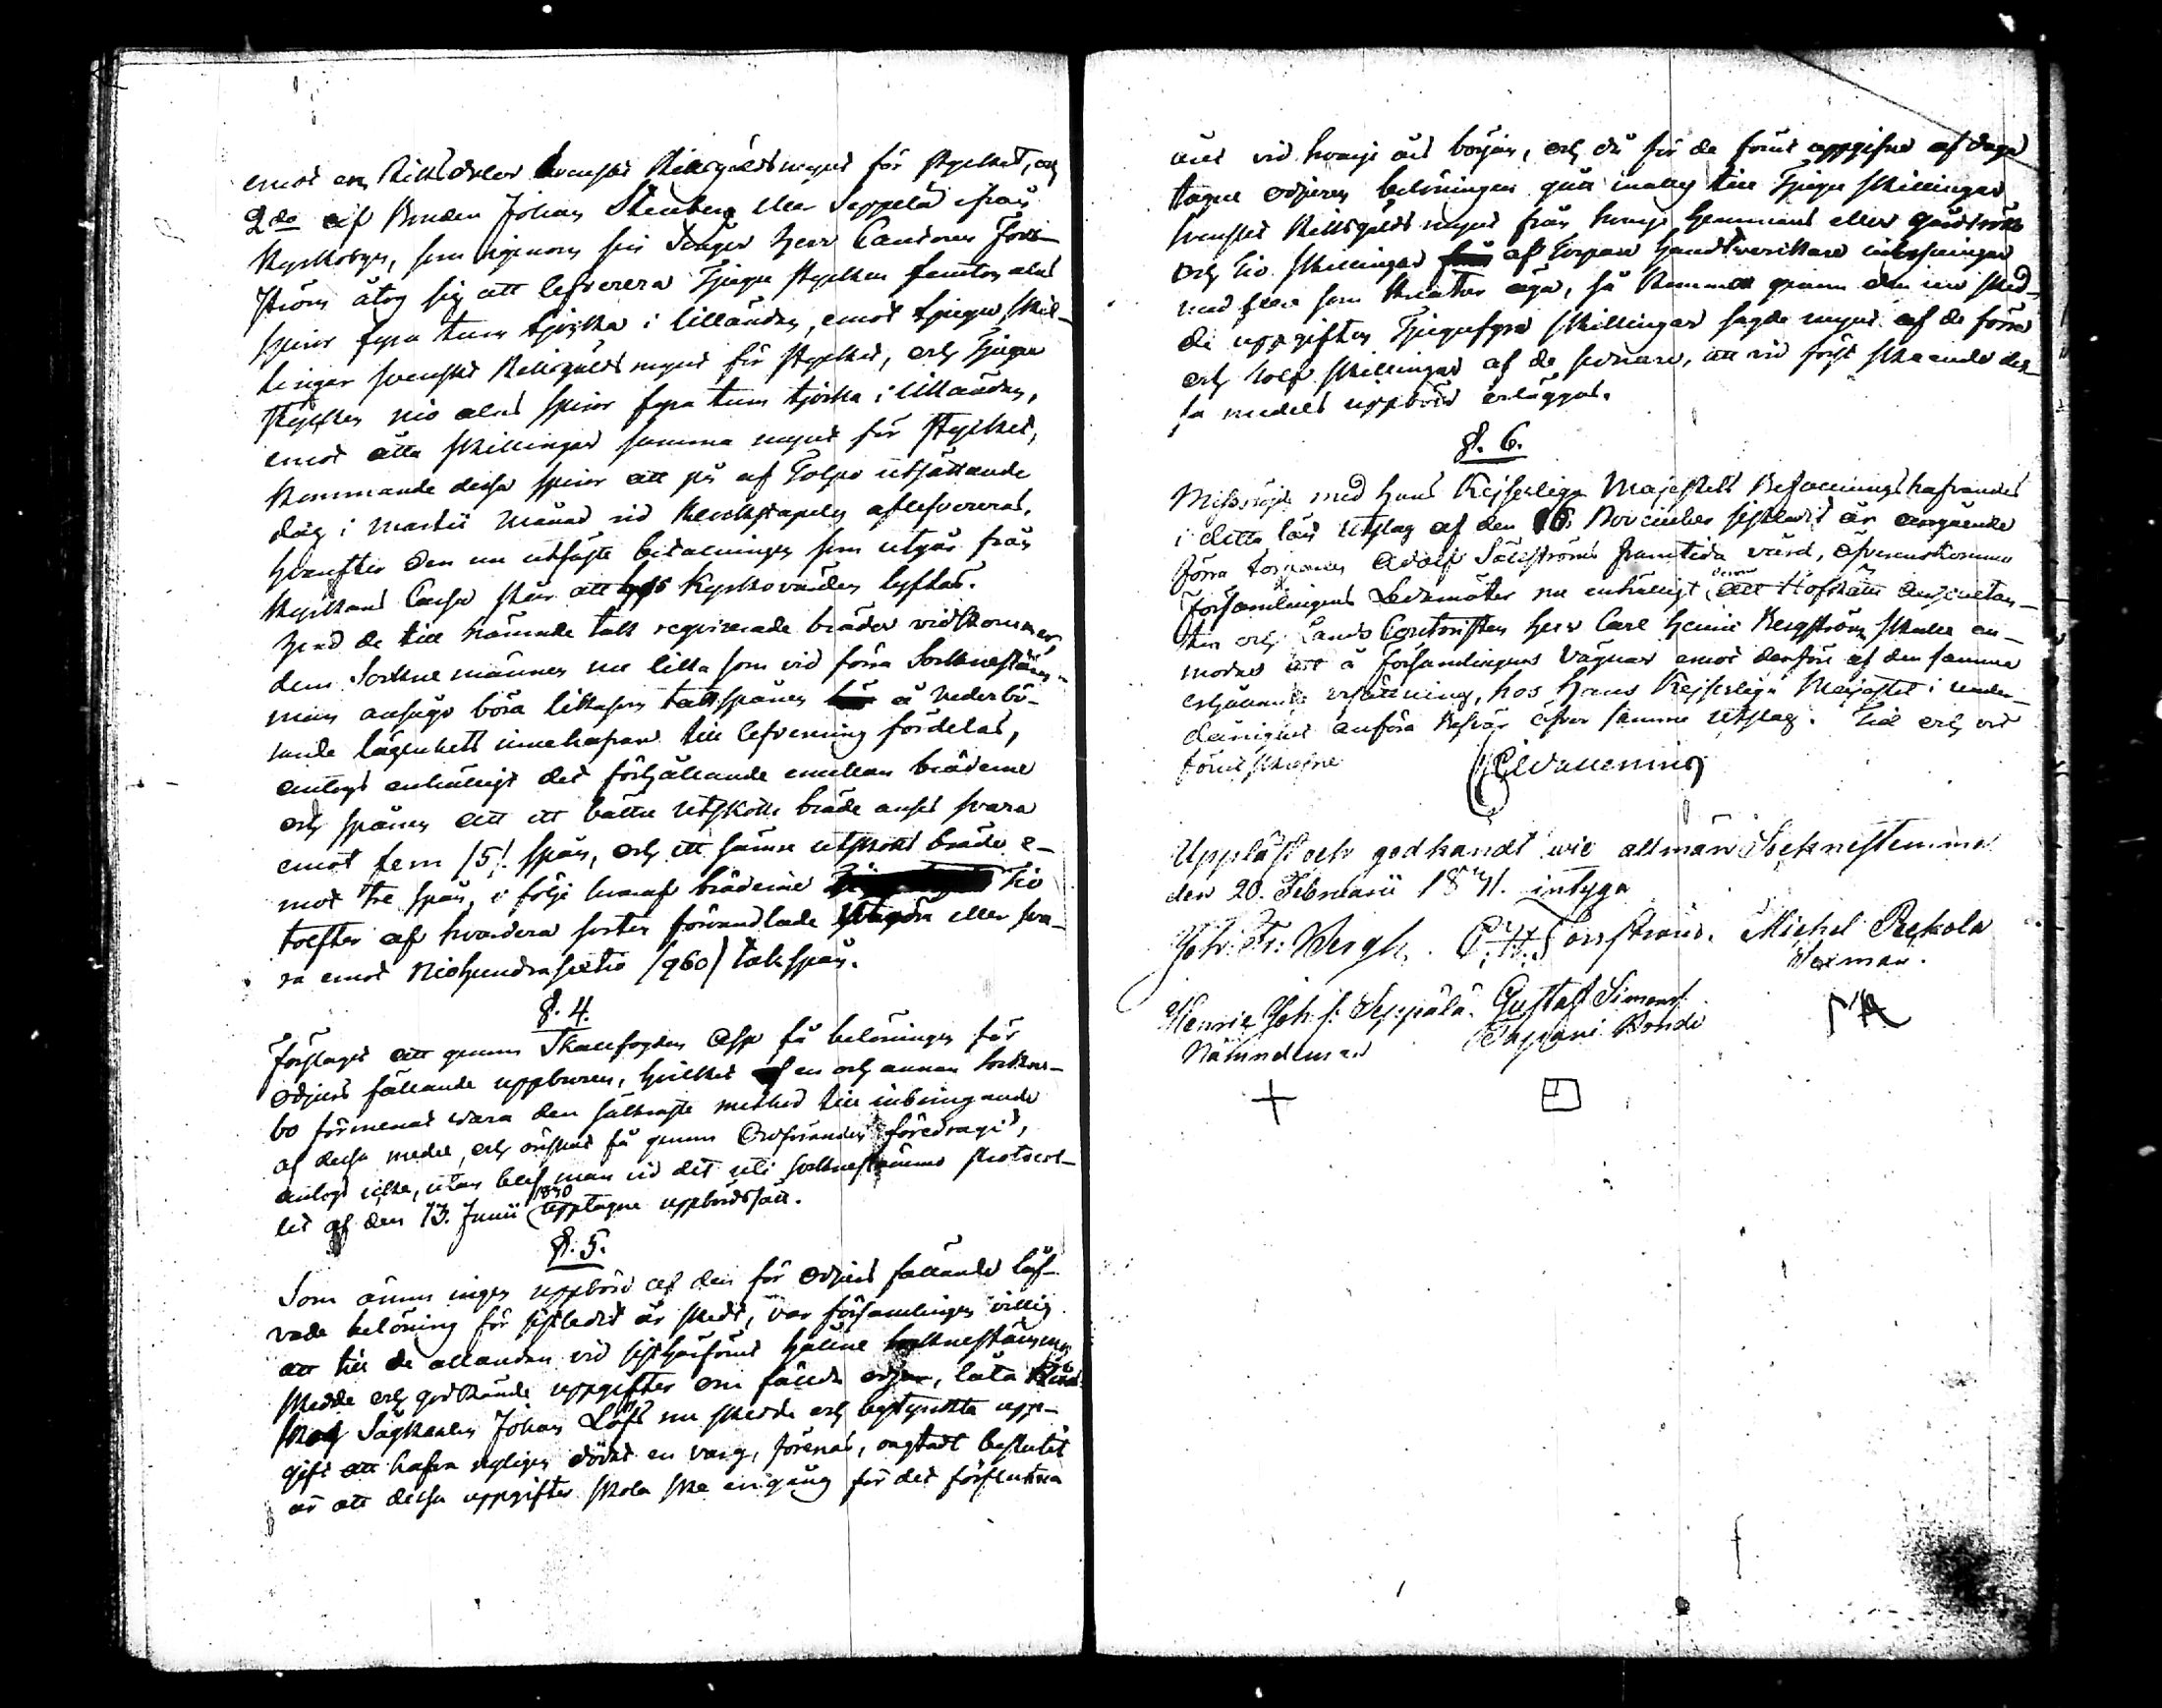 emot en Riksdaler Svenskt Riksgäldsmynt för stycket, och
2do af Bonden Johan Stenberg eller Seppelä ifrån
Kyrkobyn, som igenom sin Svåger Herr Cantoren Fors-
ström åtog sig att lefverera Tjugu stycken femton alns
spiror fyra tum tjocka i lilländan, emot tjugu skil-
lingar svenskt Riksgälds mynt för stycket, och Tjugu
stycken nio alns spiror fyra tum tjocka i lilländan,
emot åtta skillingar samma mynt för stycket,
kommande dessa spiror att på af Tolpo utsättande
dag i Martii månad vid Klockstapeln aflefvereras,
hvarefter den nu utfäste betalningen som utgår från
Kyrkans Cassa får att hos Kyrkovärden lyftas.
Hvad de till nämnde tak requirerade bräder vidkommer,
dem Sockne männen nu lika som vid förra Sockneständ-
man ansågo böra likasom takspånen å nederbö-
rande lägenhets innehafvare till lefverering fördelas,
antogs enhälligt det förhållande emellan bräderne
och spånen att ett bättre Utskotts bräde anses svara
emot fem /5/ spån, och ett sämre utskotts bräde e-
mot tre spån, i följe hvaraf bräderne Tio
tolfter af hvardera sorten förvandlade utgöra eller sva-
ra emot Niohundrasextio /960/ takspån.
§. 4.
Förslaget att genom Skallfogden Asp få belöningen för
odjurs fällande uppburen, hvilket af en och annan Sockne-
bo förmenas wara den säkraste method till inbringande
af dessa medel, och önskas få genom Ordföranden föredragit,
antogs icke, utan blef man vid det uti Socknestämmo Protocol-
let af den 13. Junii 1840 upptagne uppbördssätt.
§. 5.
Som ännu ingen uppbörd af den för Odjurs fällande låf-
vade belöning för sistledit år skedt, var församlingen villig
att till de allaredan vid sist härförut hållne Socknestämma
skedde och godkände uppgifter om fällda odjur, låta
Sågkarlen Johan Löfs nu skedde och bestyrkta upp-
gift att hafva nyligen dödat en varg, förenas, ongtadt beslutit
är att dessa uppgifter skola ske en gång för det förflutna
året vid hvarje års början, och då för de förut uppgifne af daga
tagne odjuren belöningen gått inalles till Tjugu skillingar
svenskt Riksgälds mynt från hvarje Hemmans eller Gårdsrök
och Tio skillingar af Torpare Handtverkare inhysingar
med flere som Kreatur äga, så kommer genom den nu sked-
de uppgiften Tjugufyra skillingar sagde mynt af de förra
och tolf skillingar af de sednare, att vid först skeende des-
sa medels uppbörd erläggas.
§. 6.
Missnöjde med Hans Kejserliga Majestäts Befallningshafvandes
i detta län Utslag af den 16 November sistledit år angående
förra Torparen Adolf Sällströms framtida vård, öfverenskommo
Församlingens Ledamöter nu enhälligt, att Hofrätts Auscultan-
ten och Lands Contoristen Herr Carl Henric Bergström skulle an-
modas att å församlingens vägnar emot derföre af den samma
erhållande ersättning, hos Hans Kejserliga Majestät i under-
dånighet anföra Besvär öfver samma Utslag. Tid och ort
förut skrefne
Wallenius
Uppläst och godkändt wid allmän Socknestemma
den 20. Februarii 1841. intyga
Joh. Fr: Bergh. C. H. Forsström. Michel Pekola
Sexman.
Henric Joh. s: Seppälä. Gustaf Simons.
Nämndeman Tappani Bonde